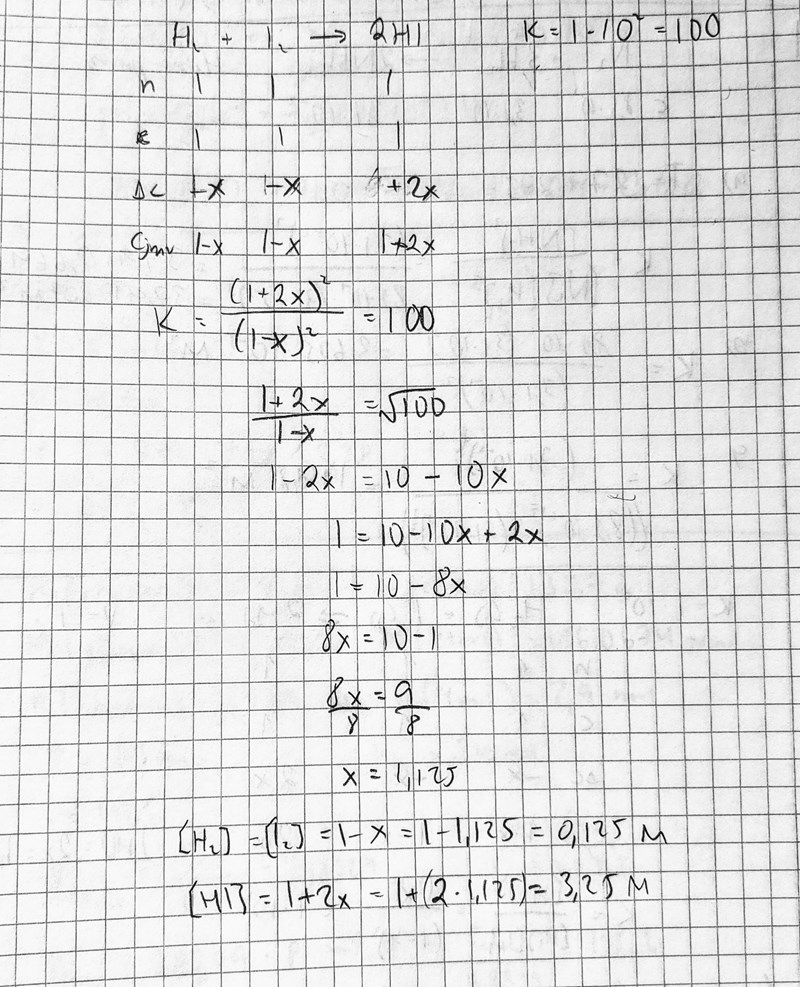 H₂ + I₂ → 2HI K = 1-10² = 100
n 1 1 1
c 1 1 1
Δc -x -x +2x
Cjmv 1-x 1-x 1+2x
K = (1+2x)² / (1-x)² = 100
1+2x / 1-x = √100
1-2x = 10 - 10x
1 = 10-10x + 2x
1 = 10 - 8x
8x = 10-1
8x/8 = 9/8
x = 1,125
[H₂] = [I₂] = 1-x = 1-1,125 = 0,125 M
[HI] = 1+2x = 1+(2·1,125) = 3,25 M